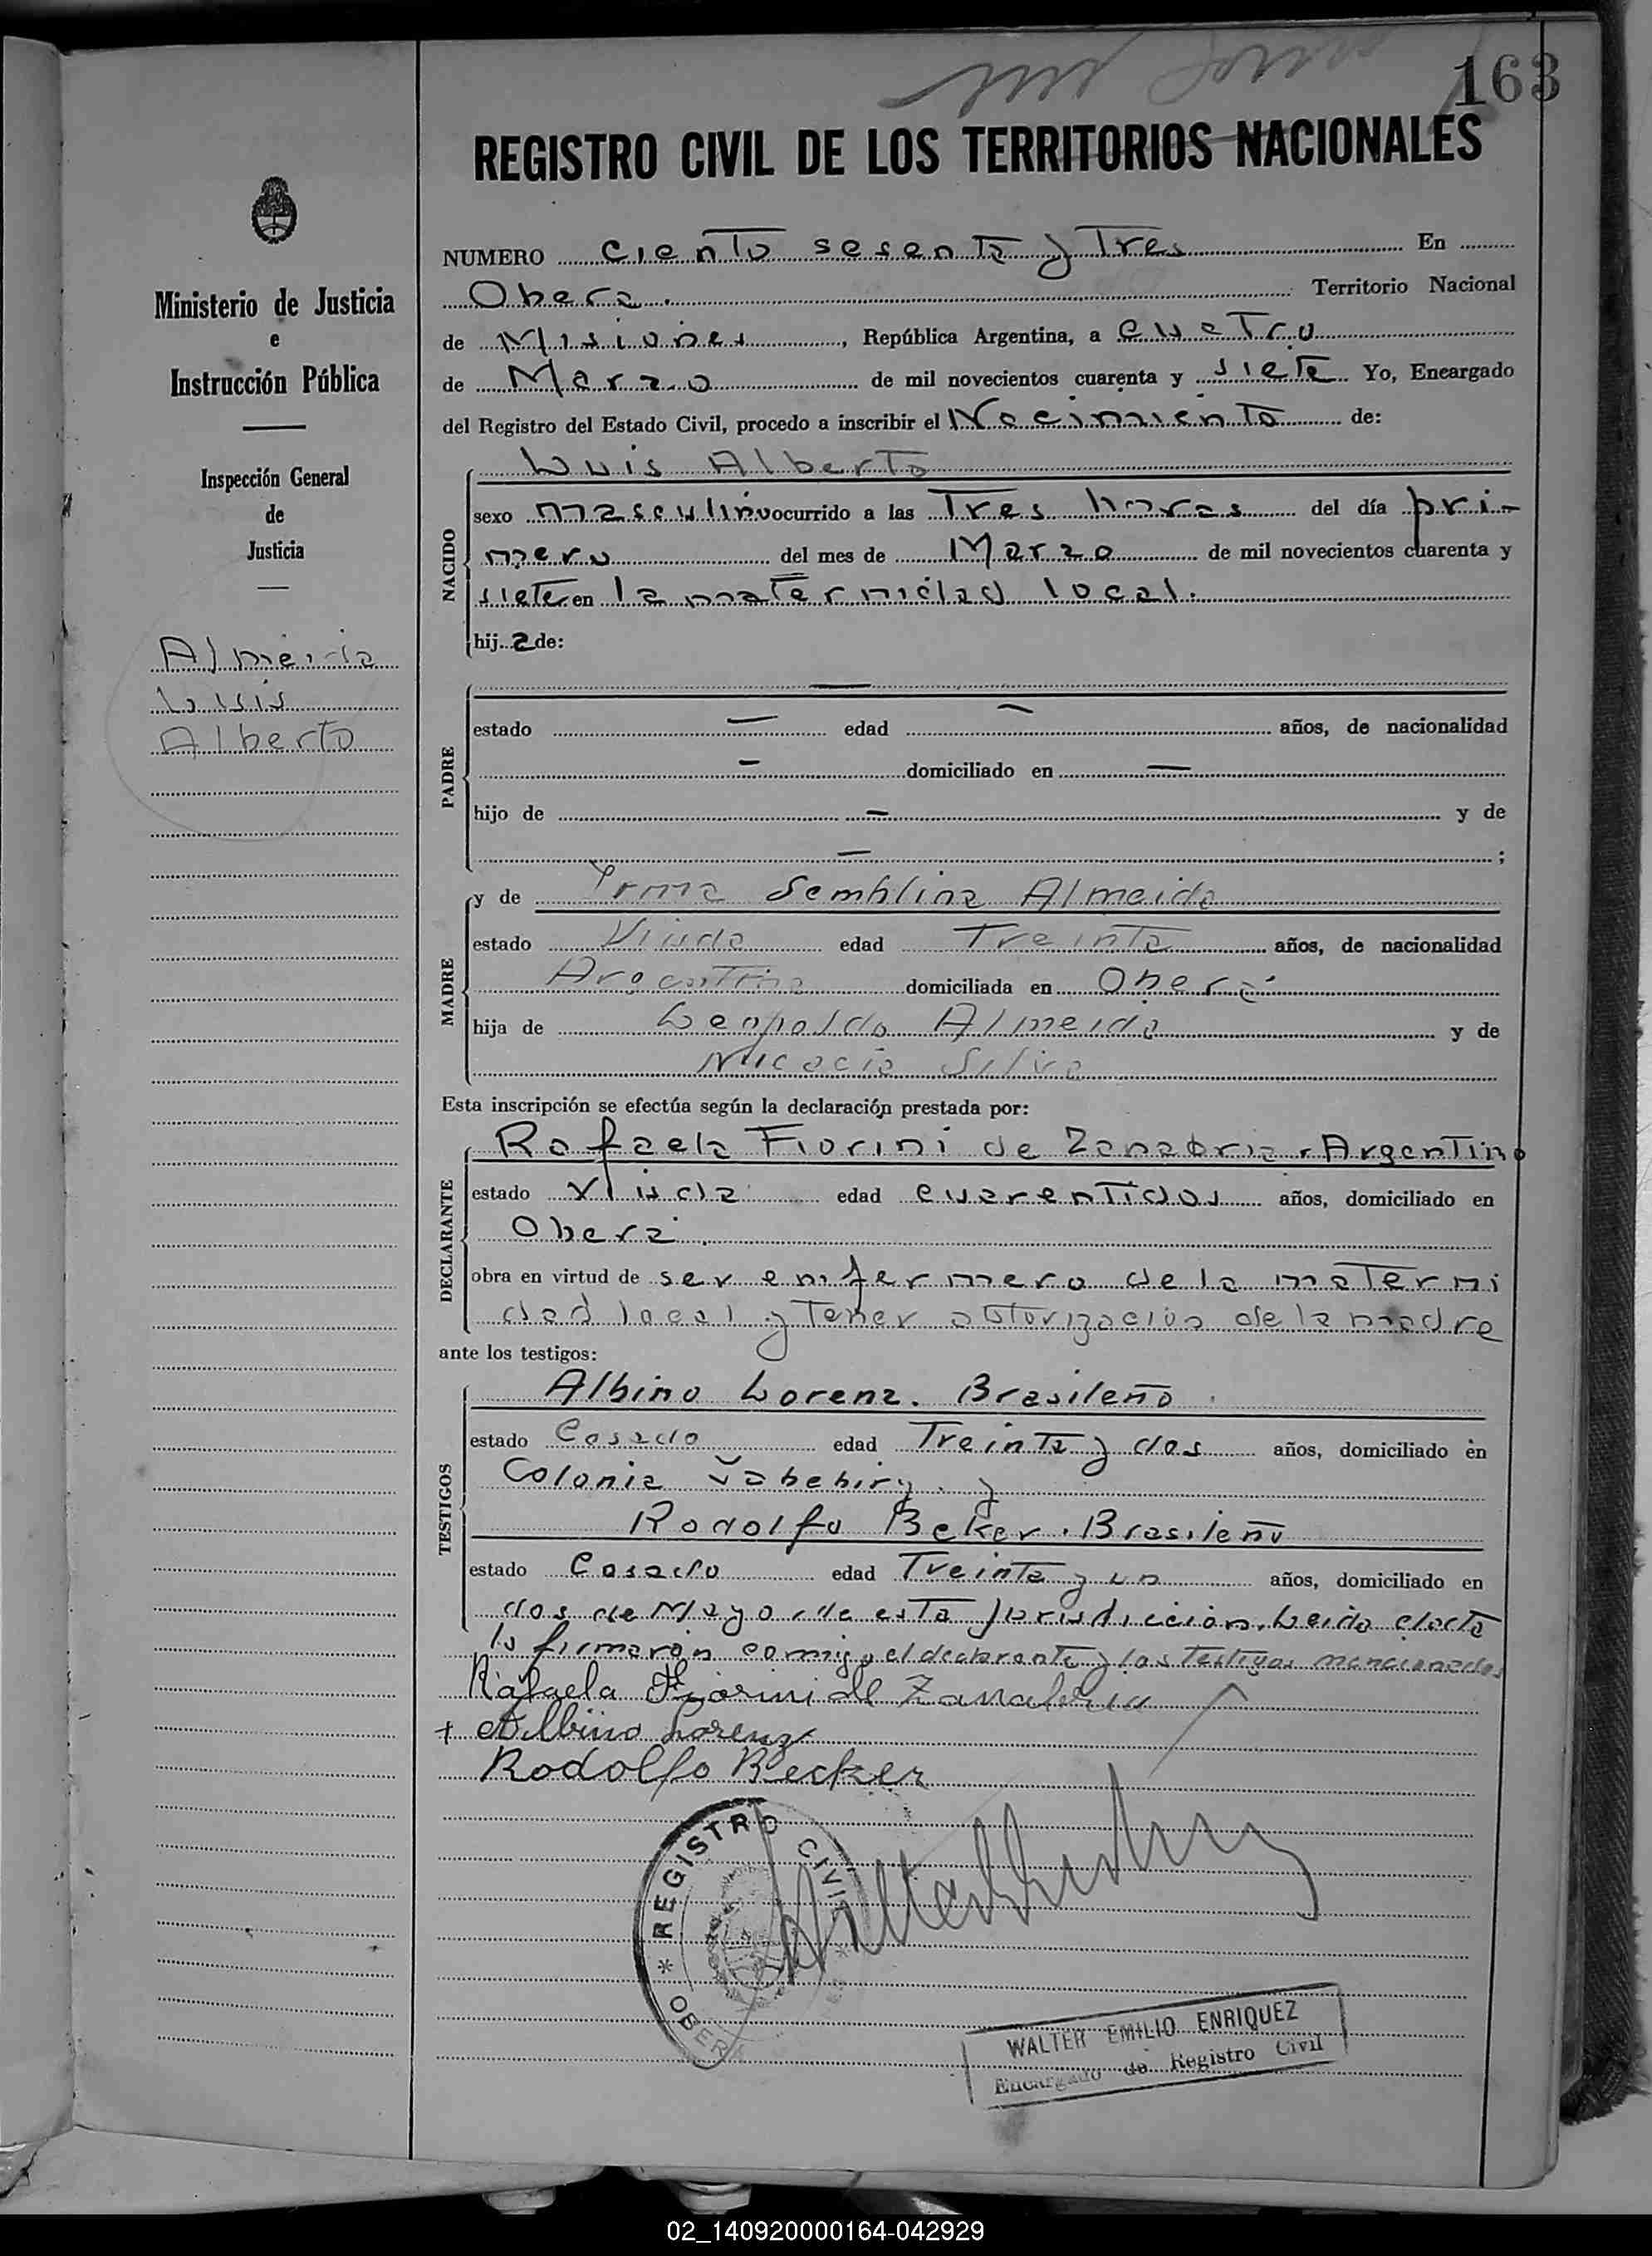 163
REGISTRO CIVIL DE LOS TERRITORIOS NACIONALES
NUMERO ciento sesenta y Tres En
Obera. Territorio Nacional
de Misiones, República Argentina, a cuatro
de Marzo de mil novecientos cuarenta y siete Yo, Encargado
del Registro del Estado Civil, procedo a inscribir el Nacimiento de:
Luis Alberto
NACIDO
sexo masculino ocurrido a las Tres horas del día pri-
mero del mes de Marzo de mil novecientos cuarenta y
siete en la maternidad local.
hij a de:
PADRE
—
estado — edad — años, de nacionalidad
— domiciliado en —
hijo de — y de
— ;
MADRE
y de Irma Semblina Almeida
estado Viuda edad Treinta años, de nacionalidad
Argentina domiciliada en Oberá
hija de Leopoldo Almeida y de
Silva
Esta inscripción se efectúa según la declaración prestada por:
DECLARANTE
Rafaela Fiorini de Zanabria. Argentina
estado Viuda edad cuarentidos años, domiciliado en
Oberá.
obra en virtud de ser enfermera de la materni
dad local y Tener autorización de la madre
ante los testigos:
TESTIGOS
Albino Lorenz. Brasileño.
estado Casado edad Treinta y dos años, domiciliado en
Colonia Yabebiry. y
Rodolfo Beker. Brasileño
estado Casado edad Treinta y un años, domiciliado en
dos de Mayo de esta Jurisdicción. Leida el acta
la firmaron comigo el declarante y los Testigos mencionados
Rafaela Fiorini de Zanabria
+ Albino Lorenz
Rodolfo Becker
* REGISTRO CIVIL *
OBERA
WALTER EMILIO ENRIQUEZ
Encargado de Registro Civil
Ministerio de Justicia
e
Instrucción Pública
Inspección General
de
Justicia
Almeida
Luis
Alberto
02_140920000164-042929